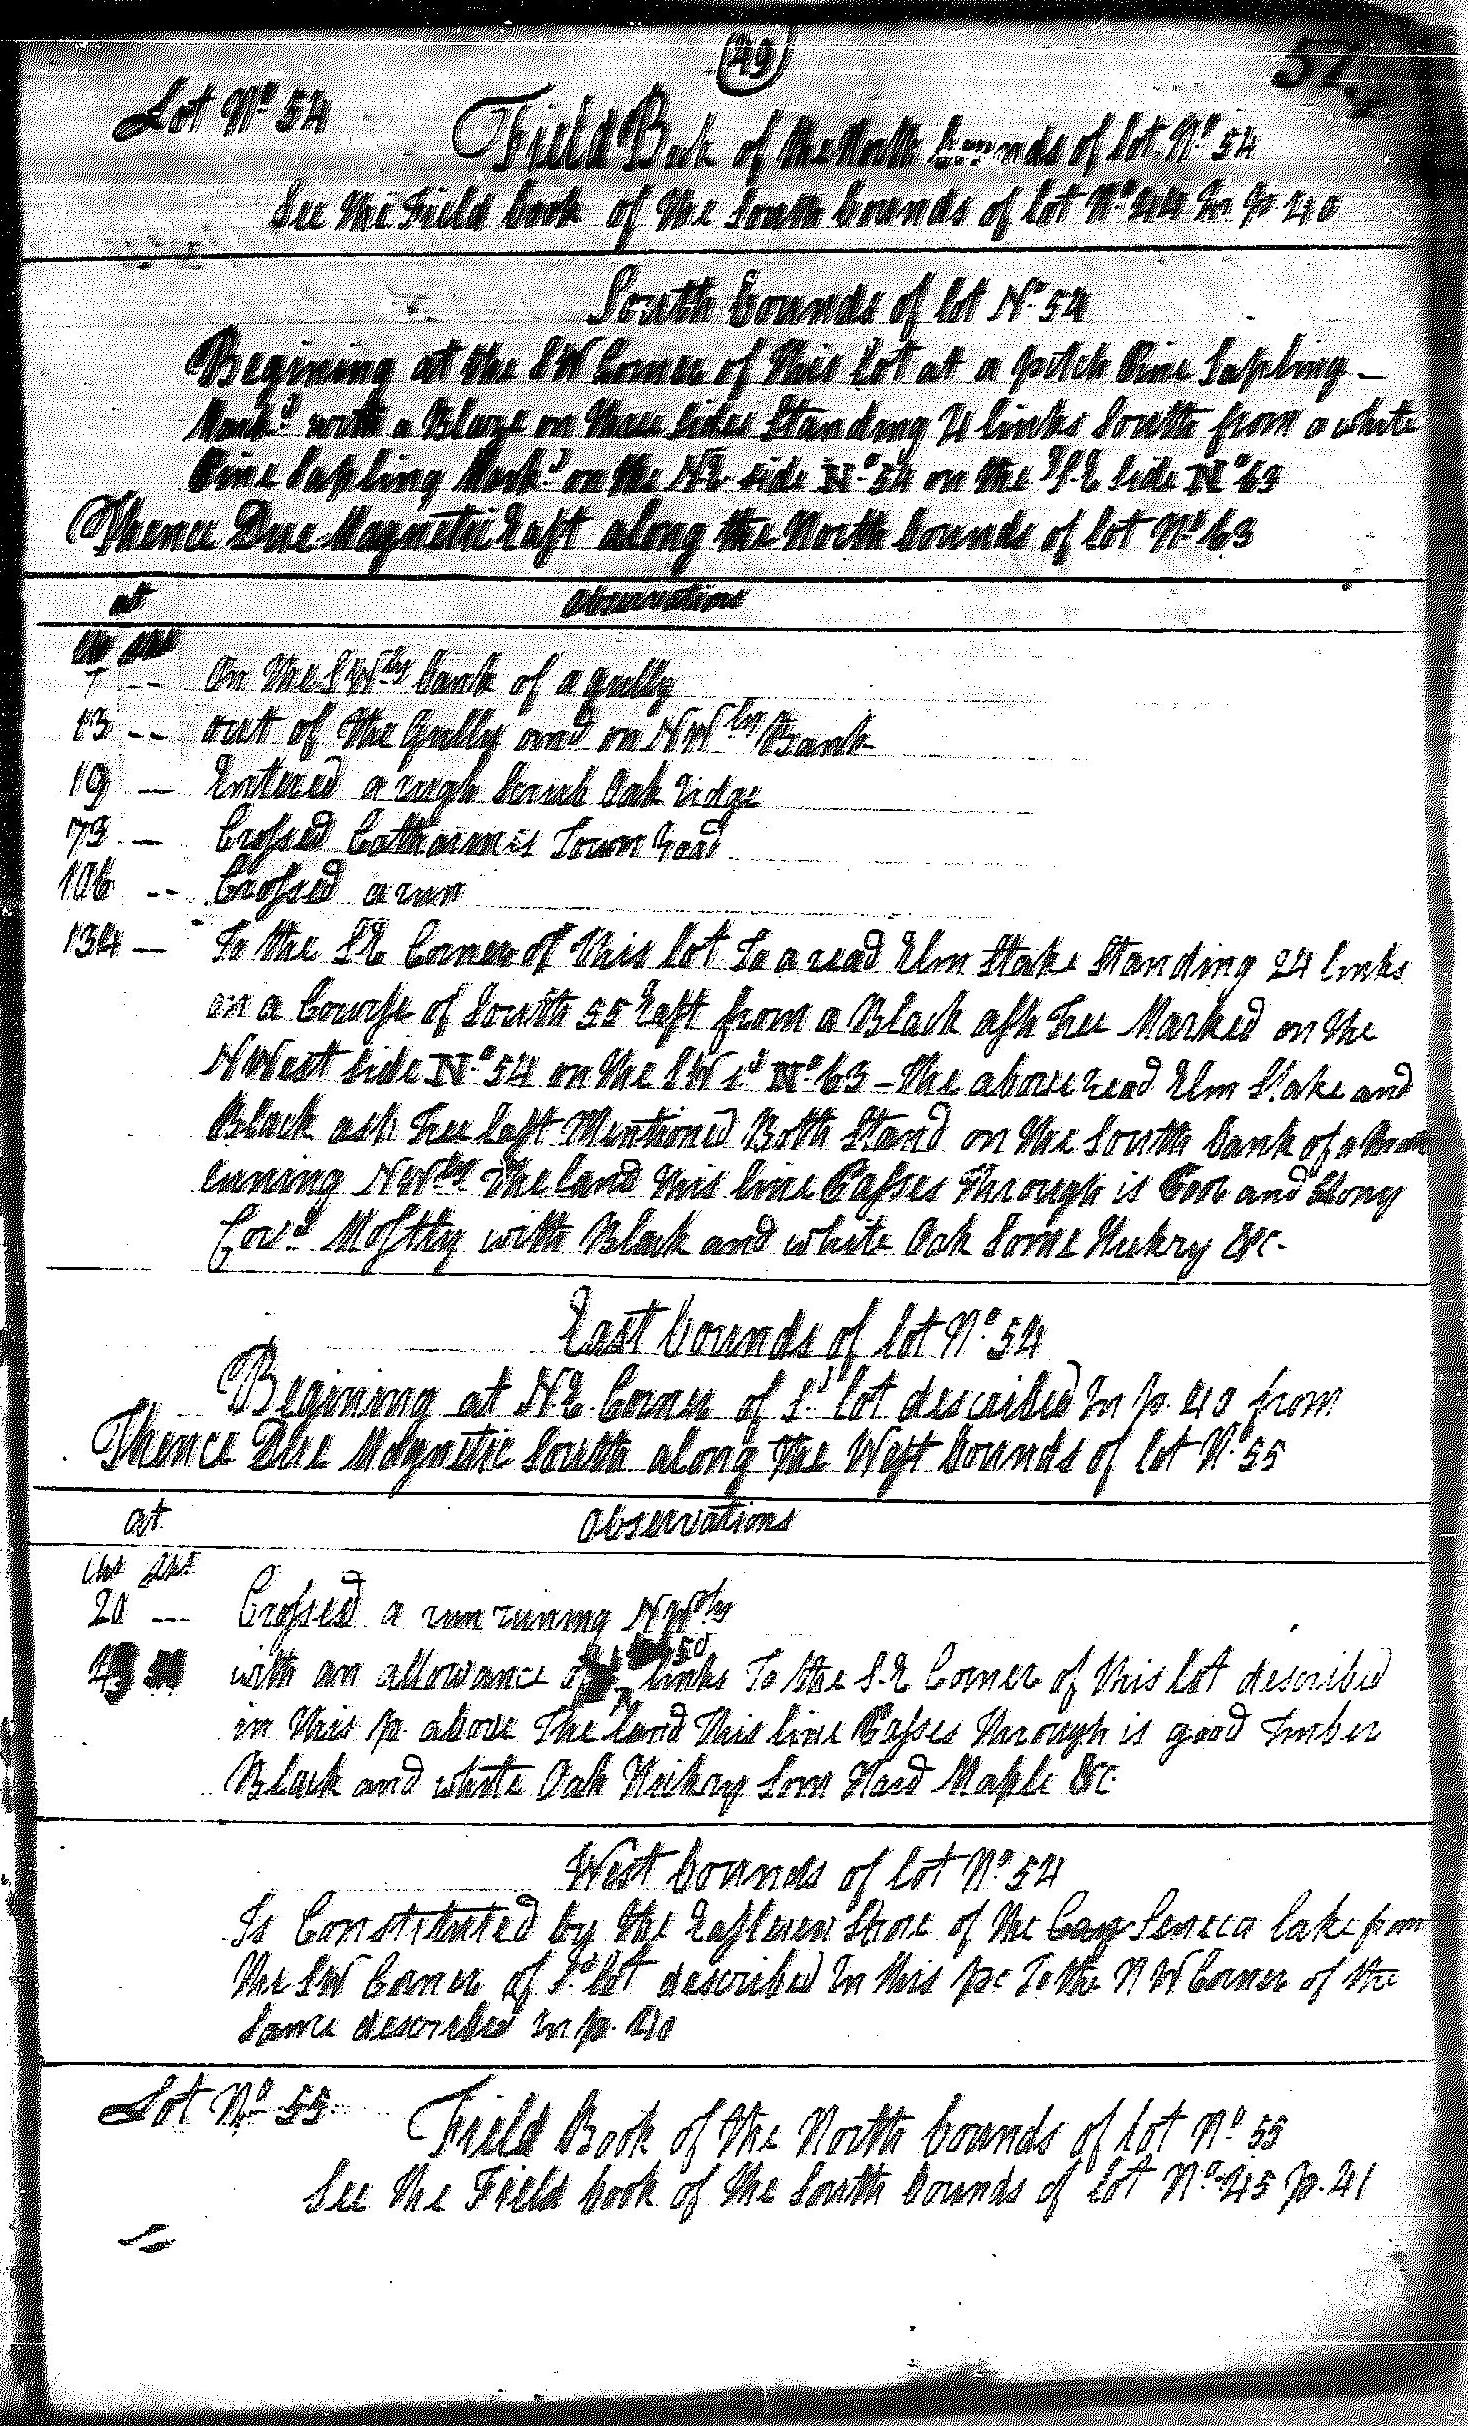 49
Lot No 54
Field Book of the North bounds of lot No 54
See the Field book of the South bounds of lot No 44 In p 40
South bounds of lot No 54
Begining at the SW Corner of this Lot at a pitch Pine Sapling -
Markd with a Blaze on three sides Standing 21 links South from a white
Pine Sapling Markd on the NE side No 54 on the S.E side No 63
Thence Due Magnetic East along the North bounds of lot No 63
at Observations
Chs Lks
7 -- On the SWtly bank of a gully
13 -- out of the Gully and on NWtly Bank
19 -- Entered a rugh Scrub Oak ridge
73 -- Crossed Catharines Town road
106 -- Crossed a run
134 -- To the SE Corner of this lot To a read Elm Stake Standing 24 links
on a Course of South 55 East from a Black ash tree Marked on the
NWest side No 54 on the SW sd No 63 - the above read Elm Stake and
Black ash tree last Mentioned Both Stand on the South bank of a
runing NWtly The land this line Passes Through is Poor and Stony
Covd Mostly with Black and white Oak Some Hickry &c-
East bounds of lot No 54
Begining at NE Corner of sd lot described In p. 40 from
Thence Due Magnetic South along the West bounds of lot No 55
at Observations
Chs Lks
20 -- Crossed a run runing NWtly
with an allowance of 50 links To the S.E Corner of this lot described
in this p. above The land this line Passes through is good Timber
Black and white Oak Hickry Som Hard Maple &c
West bounds of lot No 54
Is Constituted by the Eastern Shore of the Cay Seneca lake from
the SW Corner of sd lot described In this pe To the NW Corner of the
same described In p. 40
Lot No 55
Field Book of the North bounds of lot No 55
See the Field book of the South bounds of lot No 45 p. 41